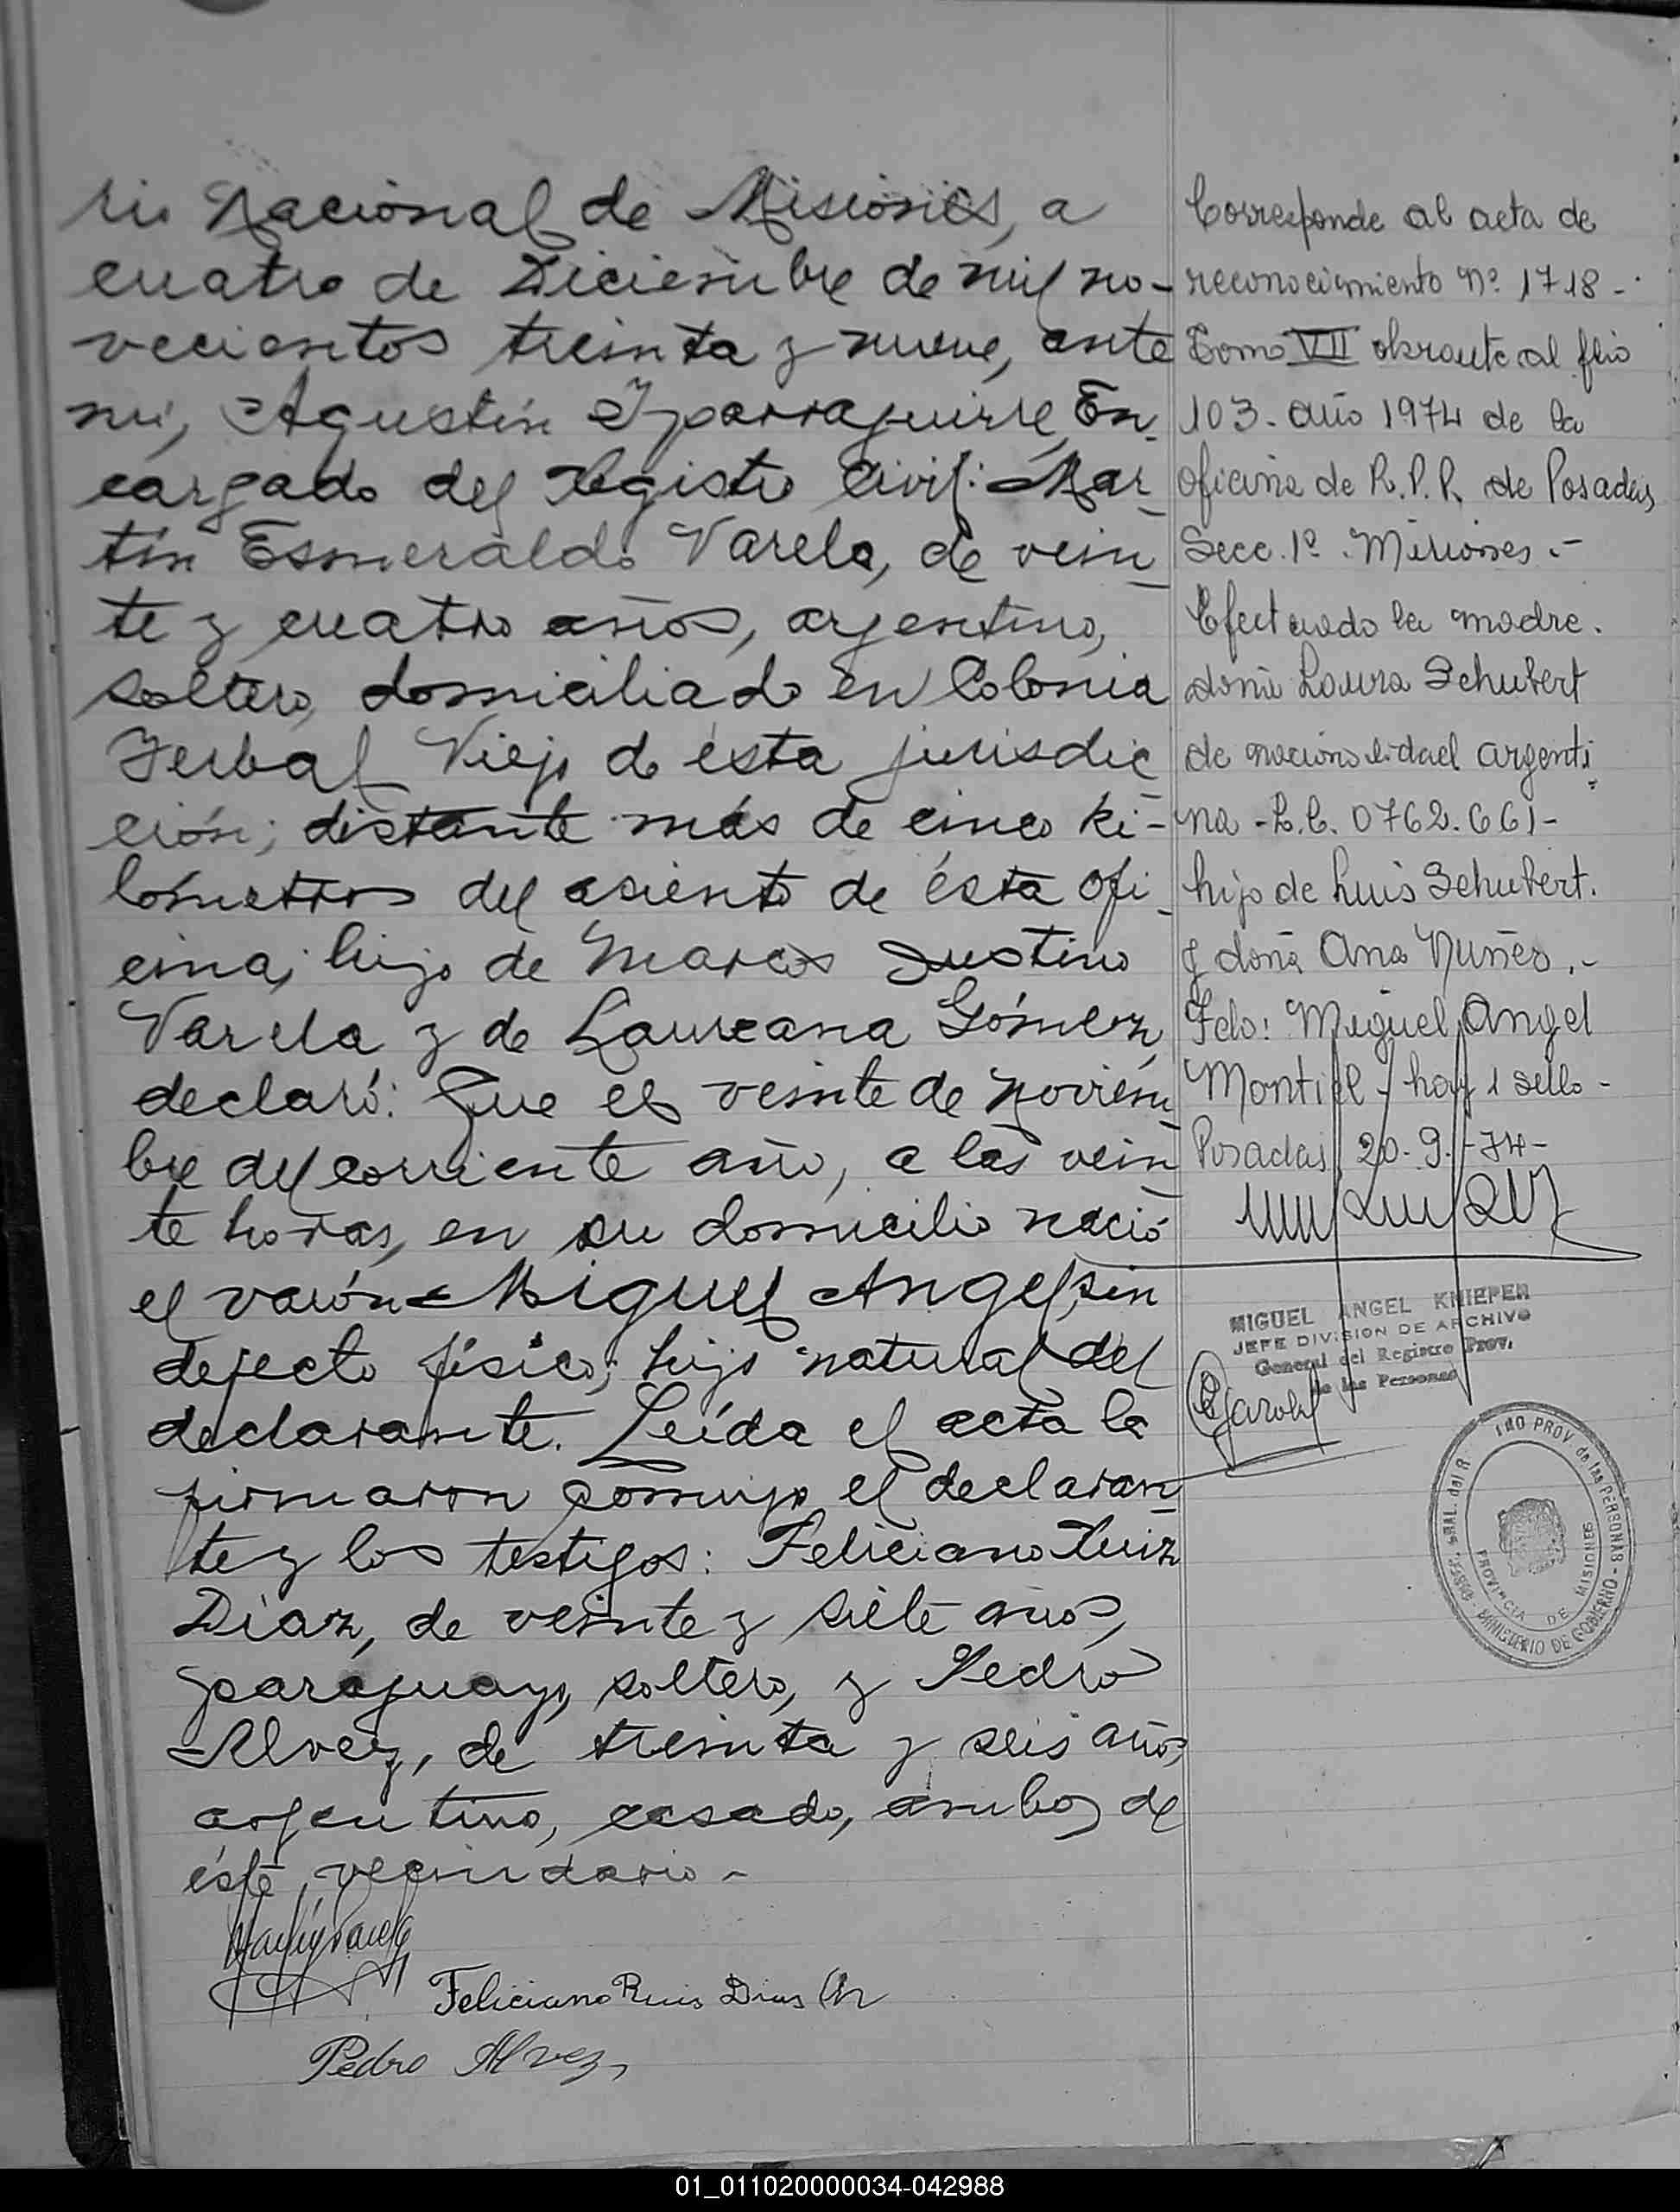 rio Nacional de Misiones, a
cuatro de Diciembre de mil no-
vecientos treinta y nueve, ante
mi, Agustín Yparraguirre, En-
cargado del Registro Civil: Mar-
tín Esmeraldo Varela, de vein-
te y cuatro años, argentino,
soltero, domiciliado en Colonia
Yerbal Viejo de ésta jurisdic-
ción; distante más de cinco ki-
lómetros del asiento de ésta Ofi-
cina; hijo de Marcos Justino
Varela y de Laureana Gómez,
declaró: Que el veinte de Noviem-
bre del corriente año, a las vein-
te horas, en su domicilio nació
el varón Miguel Angel, sin
defecto físico; hijo natural del
declarante. Leída el acta la
firmaron conmigo el declaran-
te y los testigos: Feliciano Ruiz
Díaz, de veinte y siete años,
paraguayo, soltero, y Pedro
Alvez, de treinta y seis años,
argentino, casado, ambos de
éste vecindario.-
Feliciano Ruis Dias
Pedro Alvez
Corresponde al acta de
reconocimiento Nº 1718-
Tomo VII obrante al flio
103- año 1974 de la
oficina de R.P.P. de Posadas,
Secc. 1º. Misiones.-
Efectuado la madre.
doña Laura Schubert
de nacionalidad argenti
na - L.C. 0762.661-
hijo de Luis Schubert.
y doña Ana Nuñes.-
Fdo: Miguel Angel
Montiel - hay 1 sello -
Posadas, 20-9-74-
MIGUEL ANGEL KNIEPER
JEFE DIVISION DE ARCHIVO
General del Registro Prov.
de las Personas
GRAL. del R PROV. de las PERSONAS - MINISTERIO DE GOBIERNO
PROVINCIA DE MISIONES
01_011020000034-042988